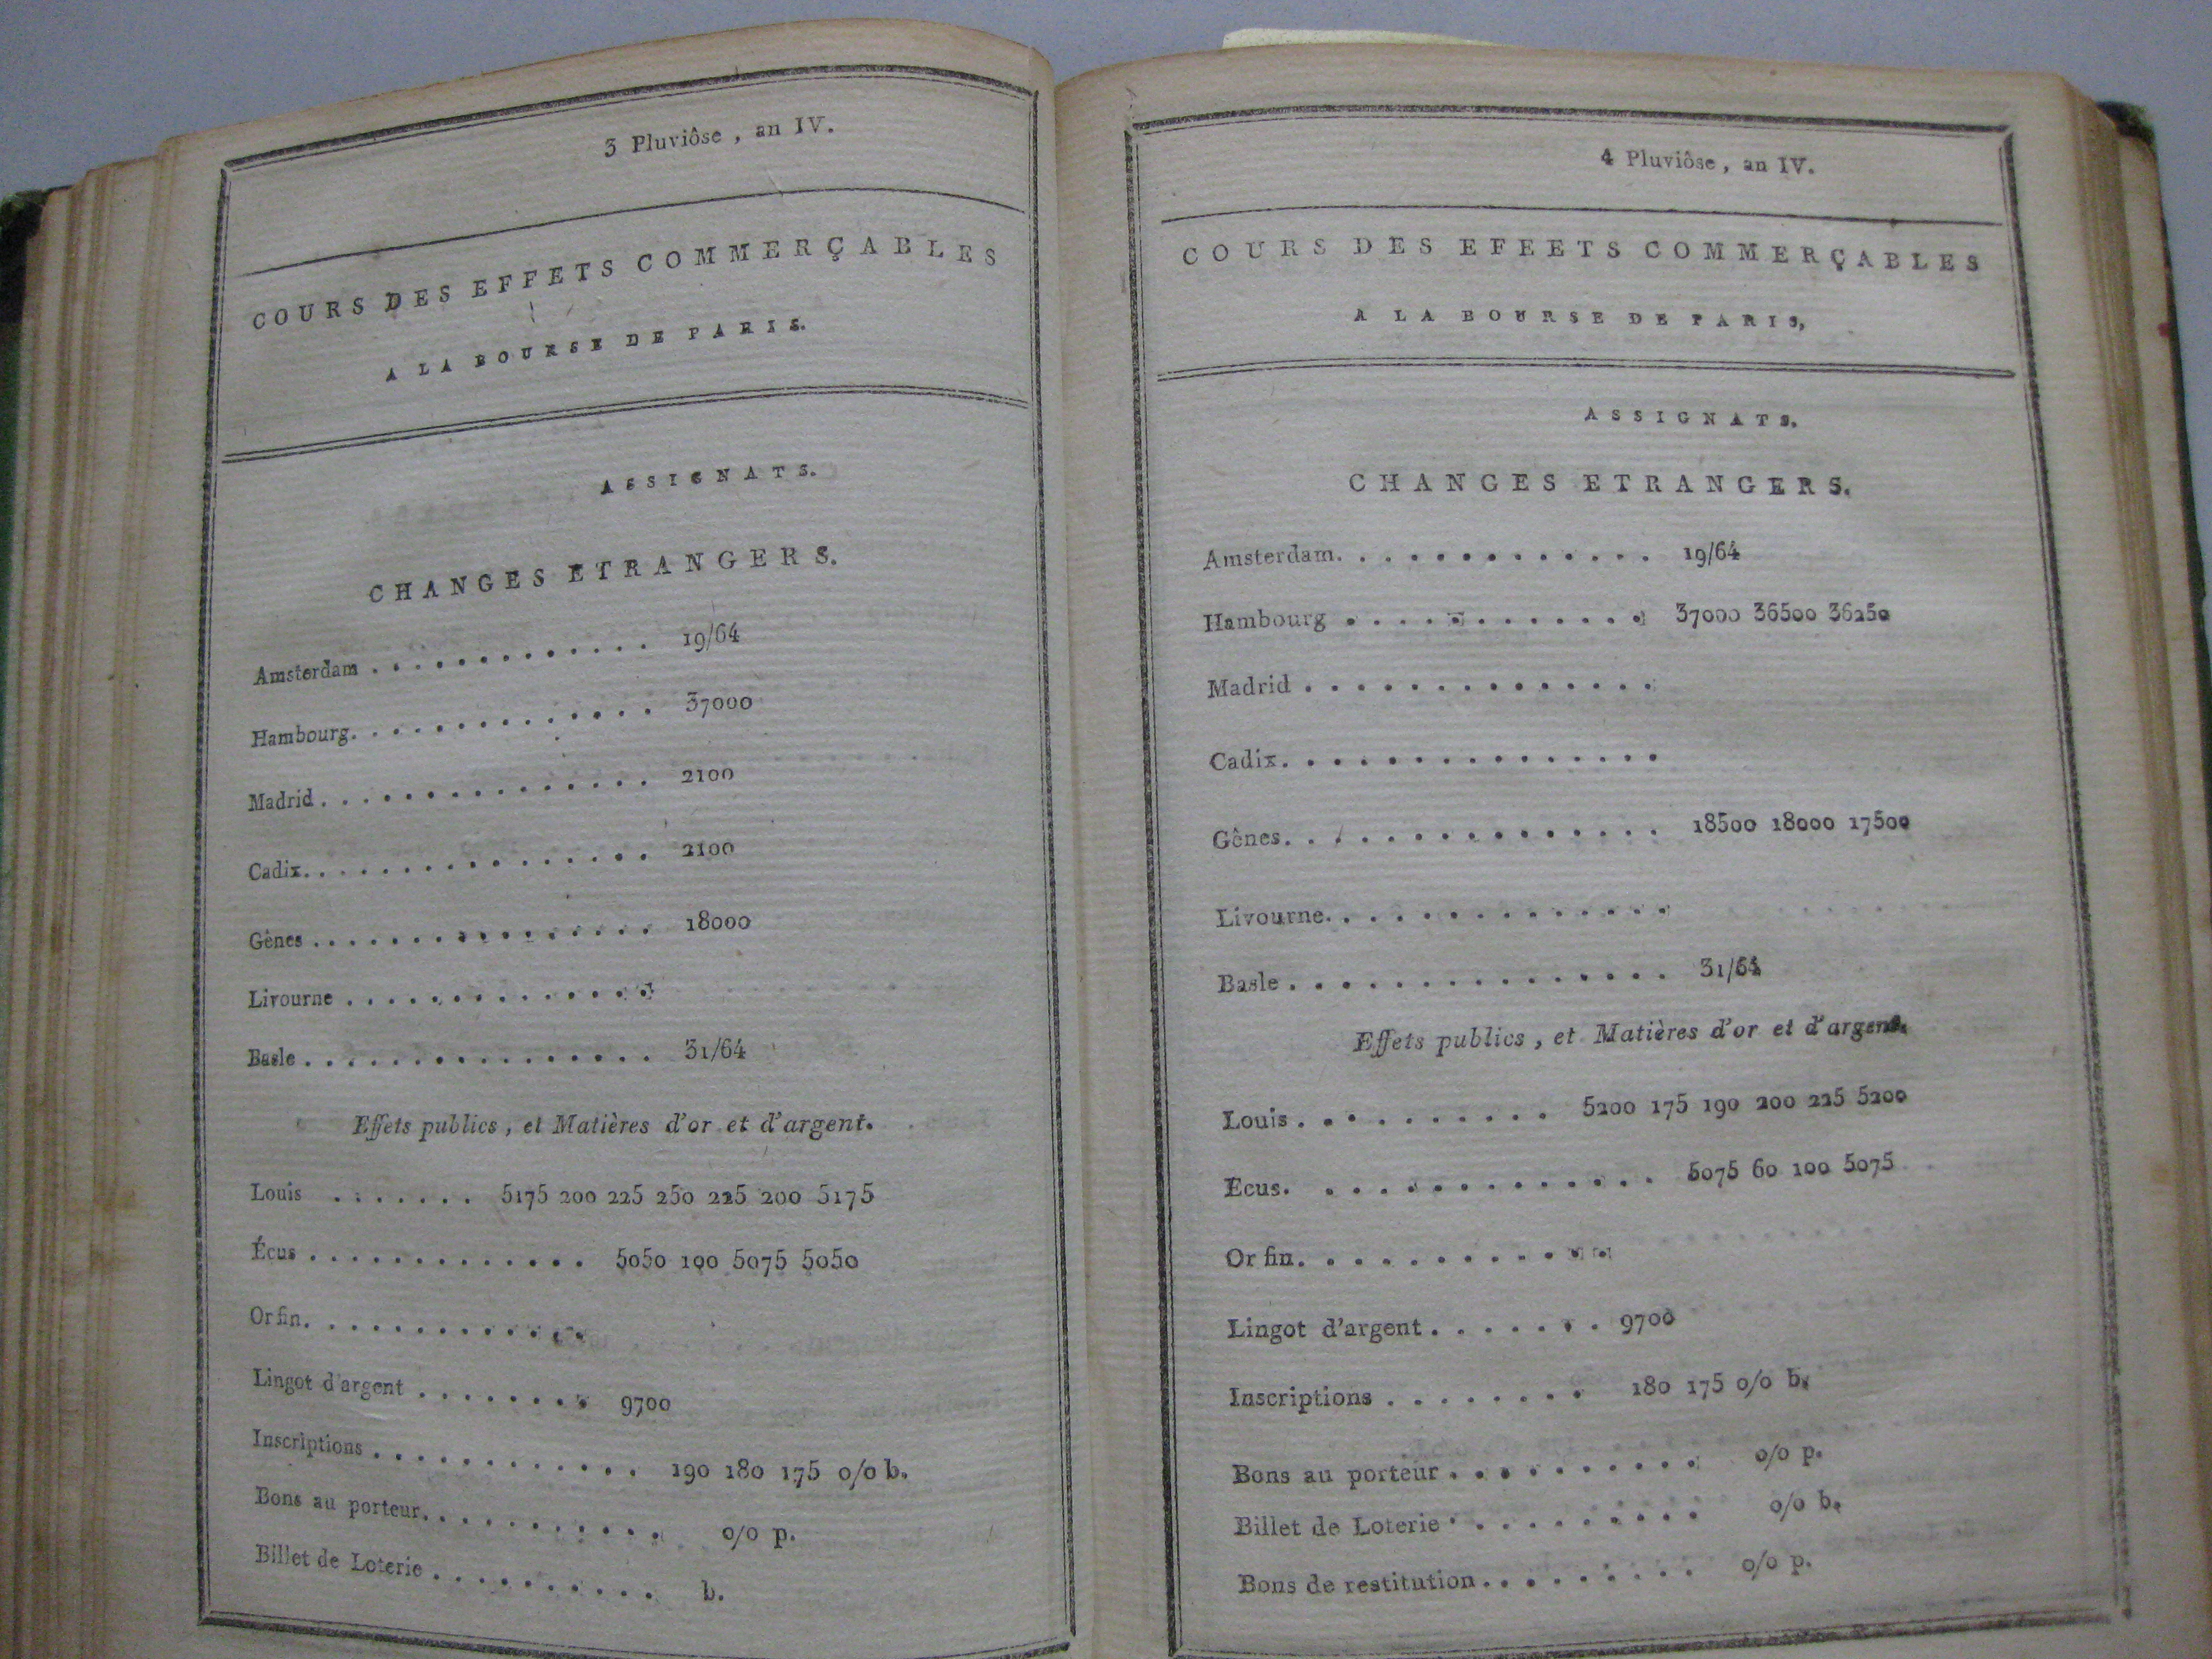 3 Pluviôse, an IV.
COURS DES EFFETS COMMERÇABLES
A LA BOURSE DE PARIS.
ASSIGNATS.
CHANGES ETRANGERS.
Amsterdam . . . . . . . . . . . . . 19/64
Hambourg. . . . . . . . . . . . . 37000
Madrid . . . . . . . . . . . . . . 2100
Cadix. . . . . . . . . . . . . . . 2100
Gênes . . . . . . . . . . . . . . . . 18000
Livourne . . . . . . . . . . . . . .
Basle . . . . . . . . . . . . . . . . 31/64
Effets publics, et Matières d'or et d'argent.
Louis . . . . . . . 5175 200 225 250 225 200 5175
Écus . . . . . . . . . . . . . 5050 100 5075 5050
Or fin. . . . . . . . . . . . .
Lingot d'argent . . . . . . . . 9700
Inscriptions . . . . . . . . . . . . 190 180 175 o/o b.
Bons au porteur. . . . . . . . . . . o/o p.
Billet de Loterie . . . . . . . . . . b.
4 Pluviôse, an IV.
COURS DES EFEETS COMMERÇABLES
A LA BOURSE DE PARIS,
ASSIGNATS.
CHANGES ETRANGERS.
Amsterdam. . . . . . . . . . . . . 19/64
Hambourg . . . . . . . . . . . . 37000 36500 36250
Madrid . . . . . . . . . . . . . .
Cadix. . . . . . . . . . . . . . .
Gênes. . . . . . . . . . . . . . . 18500 18000 17500
Livourne. . . . . . . . . . . . . .
Basle . . . . . . . . . . . . . . . 31/64
Effets publics, et Matières d'or et d'argent.
Louis . . . . . . . . . . 5200 175 190 200 225 5200
Ecus. . . . . . . . . . . . . . 5075 60 100 5075
Or fin. . . . . . . . . . . . .
Lingot d'argent . . . . . . . 9700
Inscriptions . . . . . . . . 180 175 o/o b.
Bons au porteur . . . . . . . . . . o/o p.
Billet de Loterie . . . . . . . . . . o/o b.
Bons de restitution . . . . . . . . . o/o p.